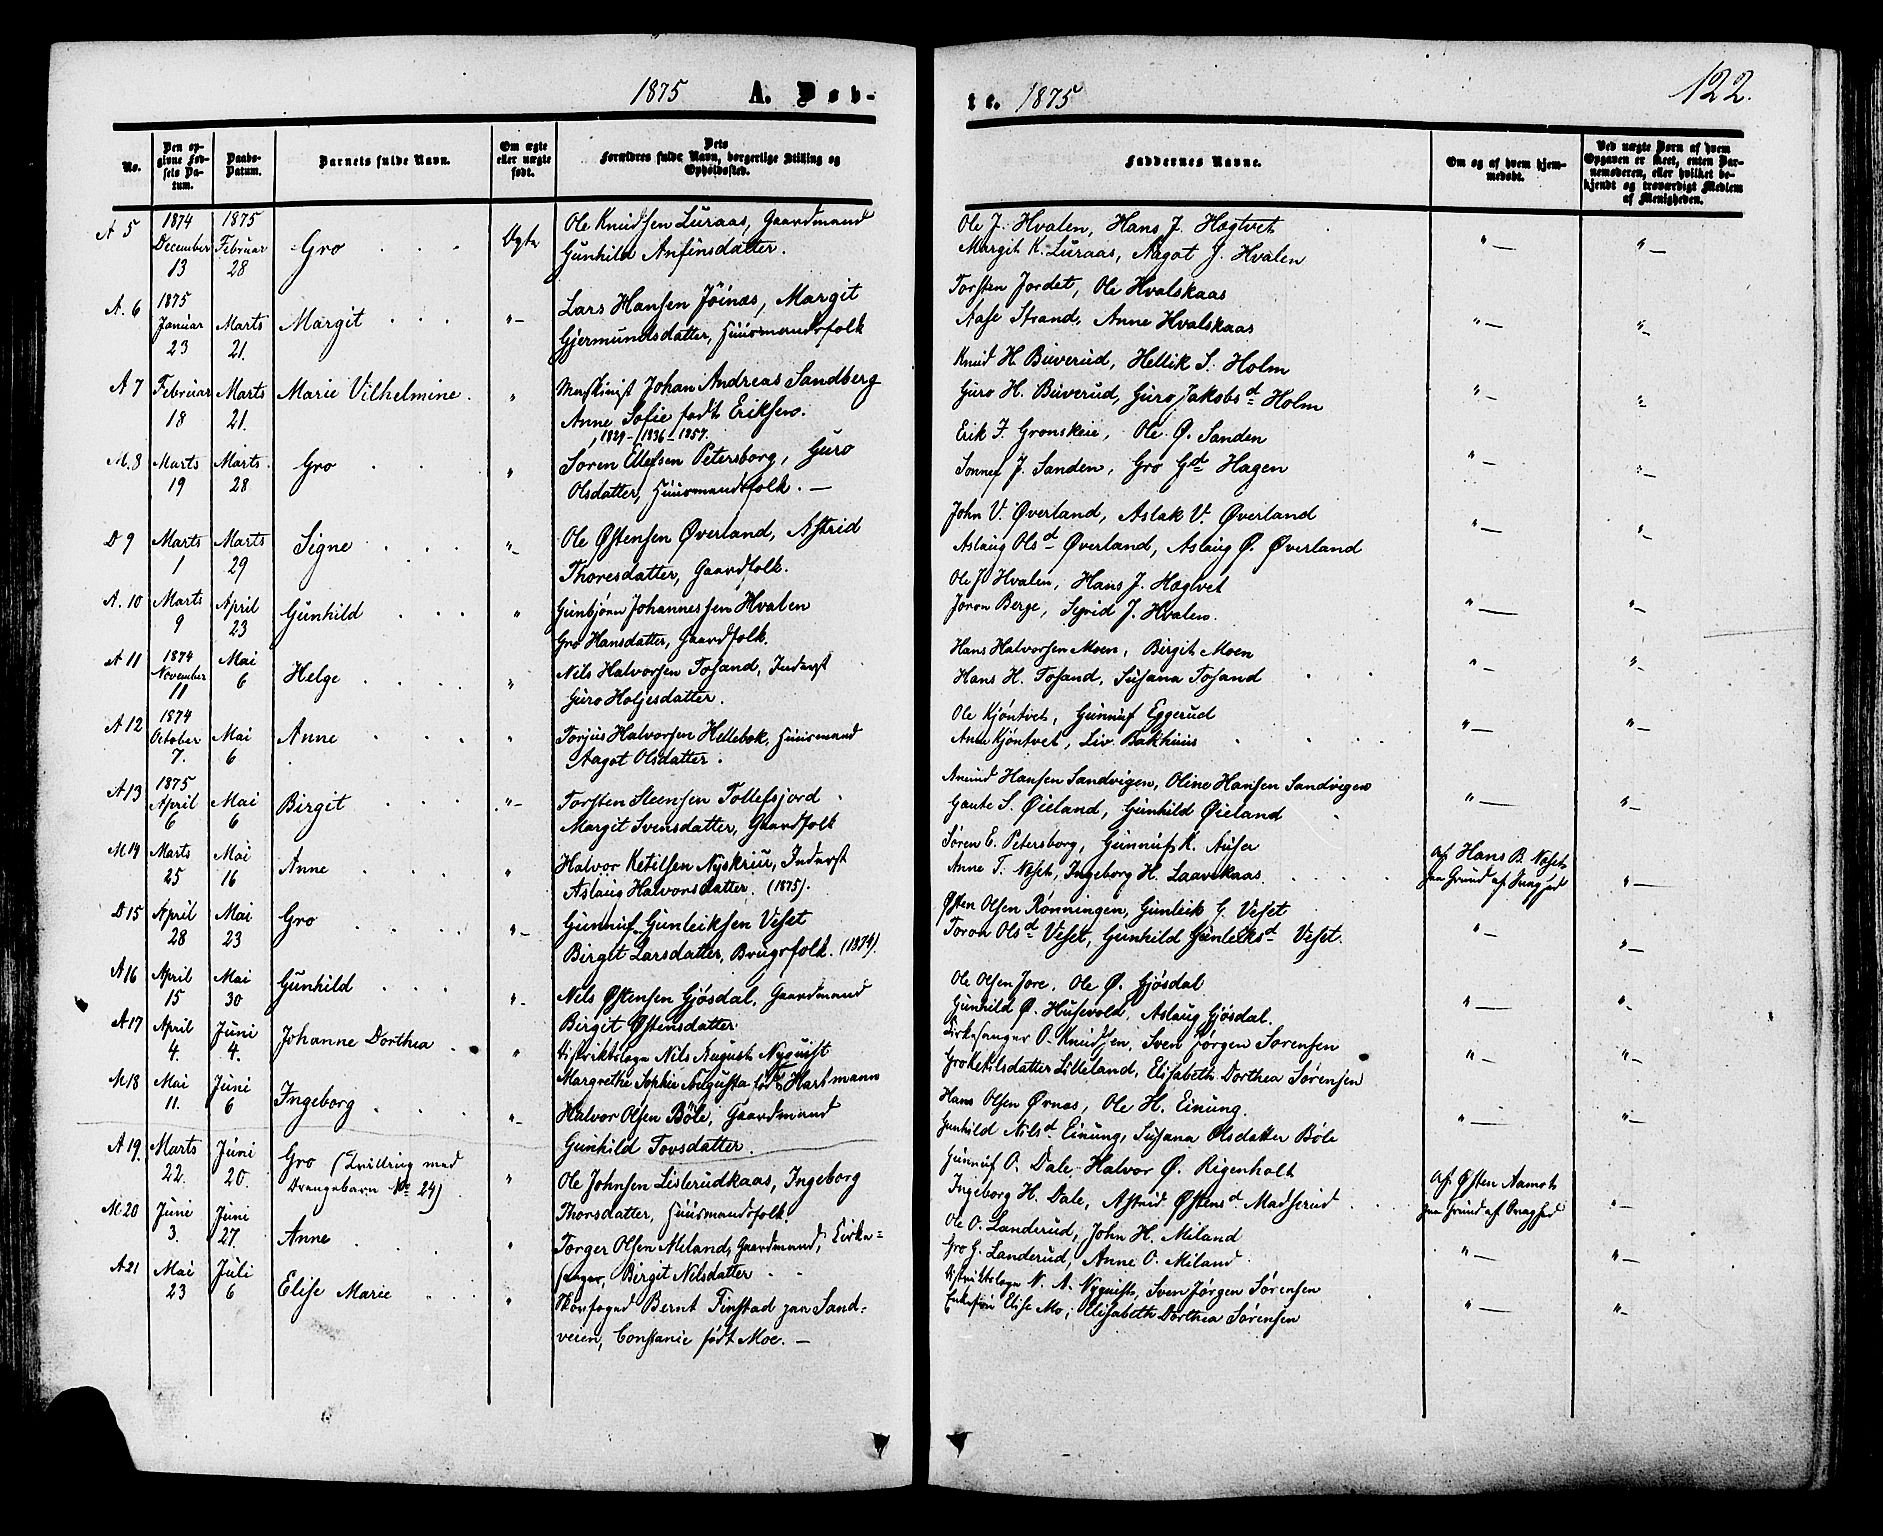 1875 A. Døb-
No.
Den op-
givne Fød-
sels Da-
tum.
Daabs-
Datum.
Barnets fulde Navn.
Om ægte
eller uægte
født.
Dets
Forældres fulde Navn, borgerlige Stilling og
Opholdssted.
A 5
1874
December
13
1875
Februar
28
Gro
Ægte
Ole Knudsen Luraas, Gaardmand
Gunhild Anfinsdatter.
A. 6
1875
Januar
23
Marts
21.
Margit
"-
Lars Hansen Jöinæs, Margit
Gjermundsdatter, Huusmandsfolk
A 7
Februar
18
Marts
21.
Marie Vilhelmine.
"
Maskinist Johan Andreas Sandberg
Anne Sofie født Eriksen.
1829 - 1836 - 1857.
M. 8
Marts
19
Marts
28
Gro
"
Soren Ellefsen Petersborg, Guro
Olsdatter, Huusmandsfolk. —
D 9
Marts
1
Marts
29
Signe
"-
Ole Østensen Øverland, Astrid
Thoresdatter, Gaardfolk.
A. 10
Marts
9
April
23
Gunhild
"
Gunbjörn Johannessen Hvalen
Gro Hansdatter, Gaardfolk.
A 11
1874
November
11
Mai
6
Helge
"
Nils Halvorsen Tosand, Inderst
Guro Holjesdatter.
A 12
1874
October
7.
Mai
6
Anne
"
Torjus Halvorsen Hellebek, Huusmand
Aagot Olsdatter.
A 13
1875
April
6
Mai
6
Birgit
"-
Torsten Steensen Tollefsjord
Margit Svensdatter, Gaardfolk
M 14
Marts
25
Mai
16
Anne
"
Halvor Ketilsen Nyskriu, Inderst
Aslaug Halvorsdatter. (1875).
D 15
April
28
Mai
23
Gro
"-
Gunnuf Gunleiksen Veset
Birgit Larsdatter, Brugsfolk. (1874).
A 16
April
15
Mai
30
Gunhild
"-
Nils Østensen Gjøsdal, Gaardmand
Birgit Østensdatter
A 17
April
4.
Juni
4.
Johanne Dorthea
"
Distriktslæge Nils August Nyquist
Margrethe Sophie Augusta født Hartmann
M 18
Mai
11.
Juni
6
Ingeborg
"-
Halvor Olsen Böle, Gaardmand
Gunhild Tovsdatter.
A 19.
Marts
22.
Juni
20.
Gro (Tvilling med
Drengebarn No 24)
"
Ole Johnsen Lislerudkaas, Ingeborg
Thorsdatter, Huusmandsfolk.
M. 20
Juni
3.
Juni
27.
Anne
"
Torger Olsen Miland, Gaardmand, Kirke-
sanger, Birgit Nilsdatter
A 21
Mai
23
Juli
6
Elise Marie
"
Skovfoged Bernt Finstad paa Sand-
veien, Constanie født Moe. —
te. 1875
122.
Faddernes Navne.
Om og af hvem hjem-
medøbt.
Ved uægte Børn af hvem
Opgaven er skeet, enten Bar-
nemoderen, eller hvilket be-
kjendt og troværdigt Medlem
af Menigheden.
Ole J. Hvalen, Hans J. Hægtvet
Margit K. Luraas, Aagot J. Hvalen
"—
"—
Torsten Jordet, Ole Hvalskaas
Aase Strand, Anne Hvalskaas
"—
"-
Knud H. Buverud, Hellik S. Holm
Guro H. Buverud, Guro Jakobsd Holm
"—
"-
Erik J. Gronskeie, Ole Ø. Sanden
Sonnev J. Sanden, Gro Gd Hagen
"—
"-
John V. Øverland, Aslak V. Øverland
Aslaug Olsd Øverland, Aslaug Ø. Øverland
"—
"-
Ole J. Hvalen, Hans J. Hægtvet
Joron Berge, Sigrid J. Hvalen.
"—
"-
Hans Halvorsen Moen, Birgit Moen
Hans H. Tosand, Susana Tosand
"-
"-
Ole Kjöntvet, Gunnuf Eggerud
Anne Kjöntvet, Liv Bakhuus
"—
"-
Amund Hansen Sandvigen, Oline Hansen Sandvigen
Gaute S. Øieland, Gunhild Øieland
"—
"-
Søren E. Petersborg, Gunnuf K. Auser
Anne T. Næset, Ingeborg H. Laavekaas
af Hans B. Næset
paa Grund af Svaghed
"—
Østen Olsen Rønningen, Gunleik G. Veset
Toron Olsd Veset, Gunhild Gunleiksd Veset.
"-
"-
Ole Olsen Jore, Ole Ø. Gjösdal
Gunhild Ø. Husevold, Aslaug Gjösdal.
"—
"-
Kirkesanger O. Knudsen, Sven Jørgen Sørensen
Gro Ketilsdatter Lilleland, Elisabeth Dorthea Sørensen
"—
"-
Hans Olsen Ørnæs, Ole H. Einung
Gunhild Nilsd Einung, Susana Olsdatter Böle
"—
"-
Gunnuf O. Dale, Halvor Ø. Rigenholt
Ingeborg H. Dale, Astrid Østensd Madserud
af Østen Aamot
paa Grund af Svaghed
"-
Ole O. Landerud, John H. Miland
Gro G. Landerud, Anne O. Miland
"—
"-
Distriktslæge N. A. Nyquist, Sven Jørgen Sørensen
Elise Mo, Elisabeth Dorthea Sørensen
"—
"-